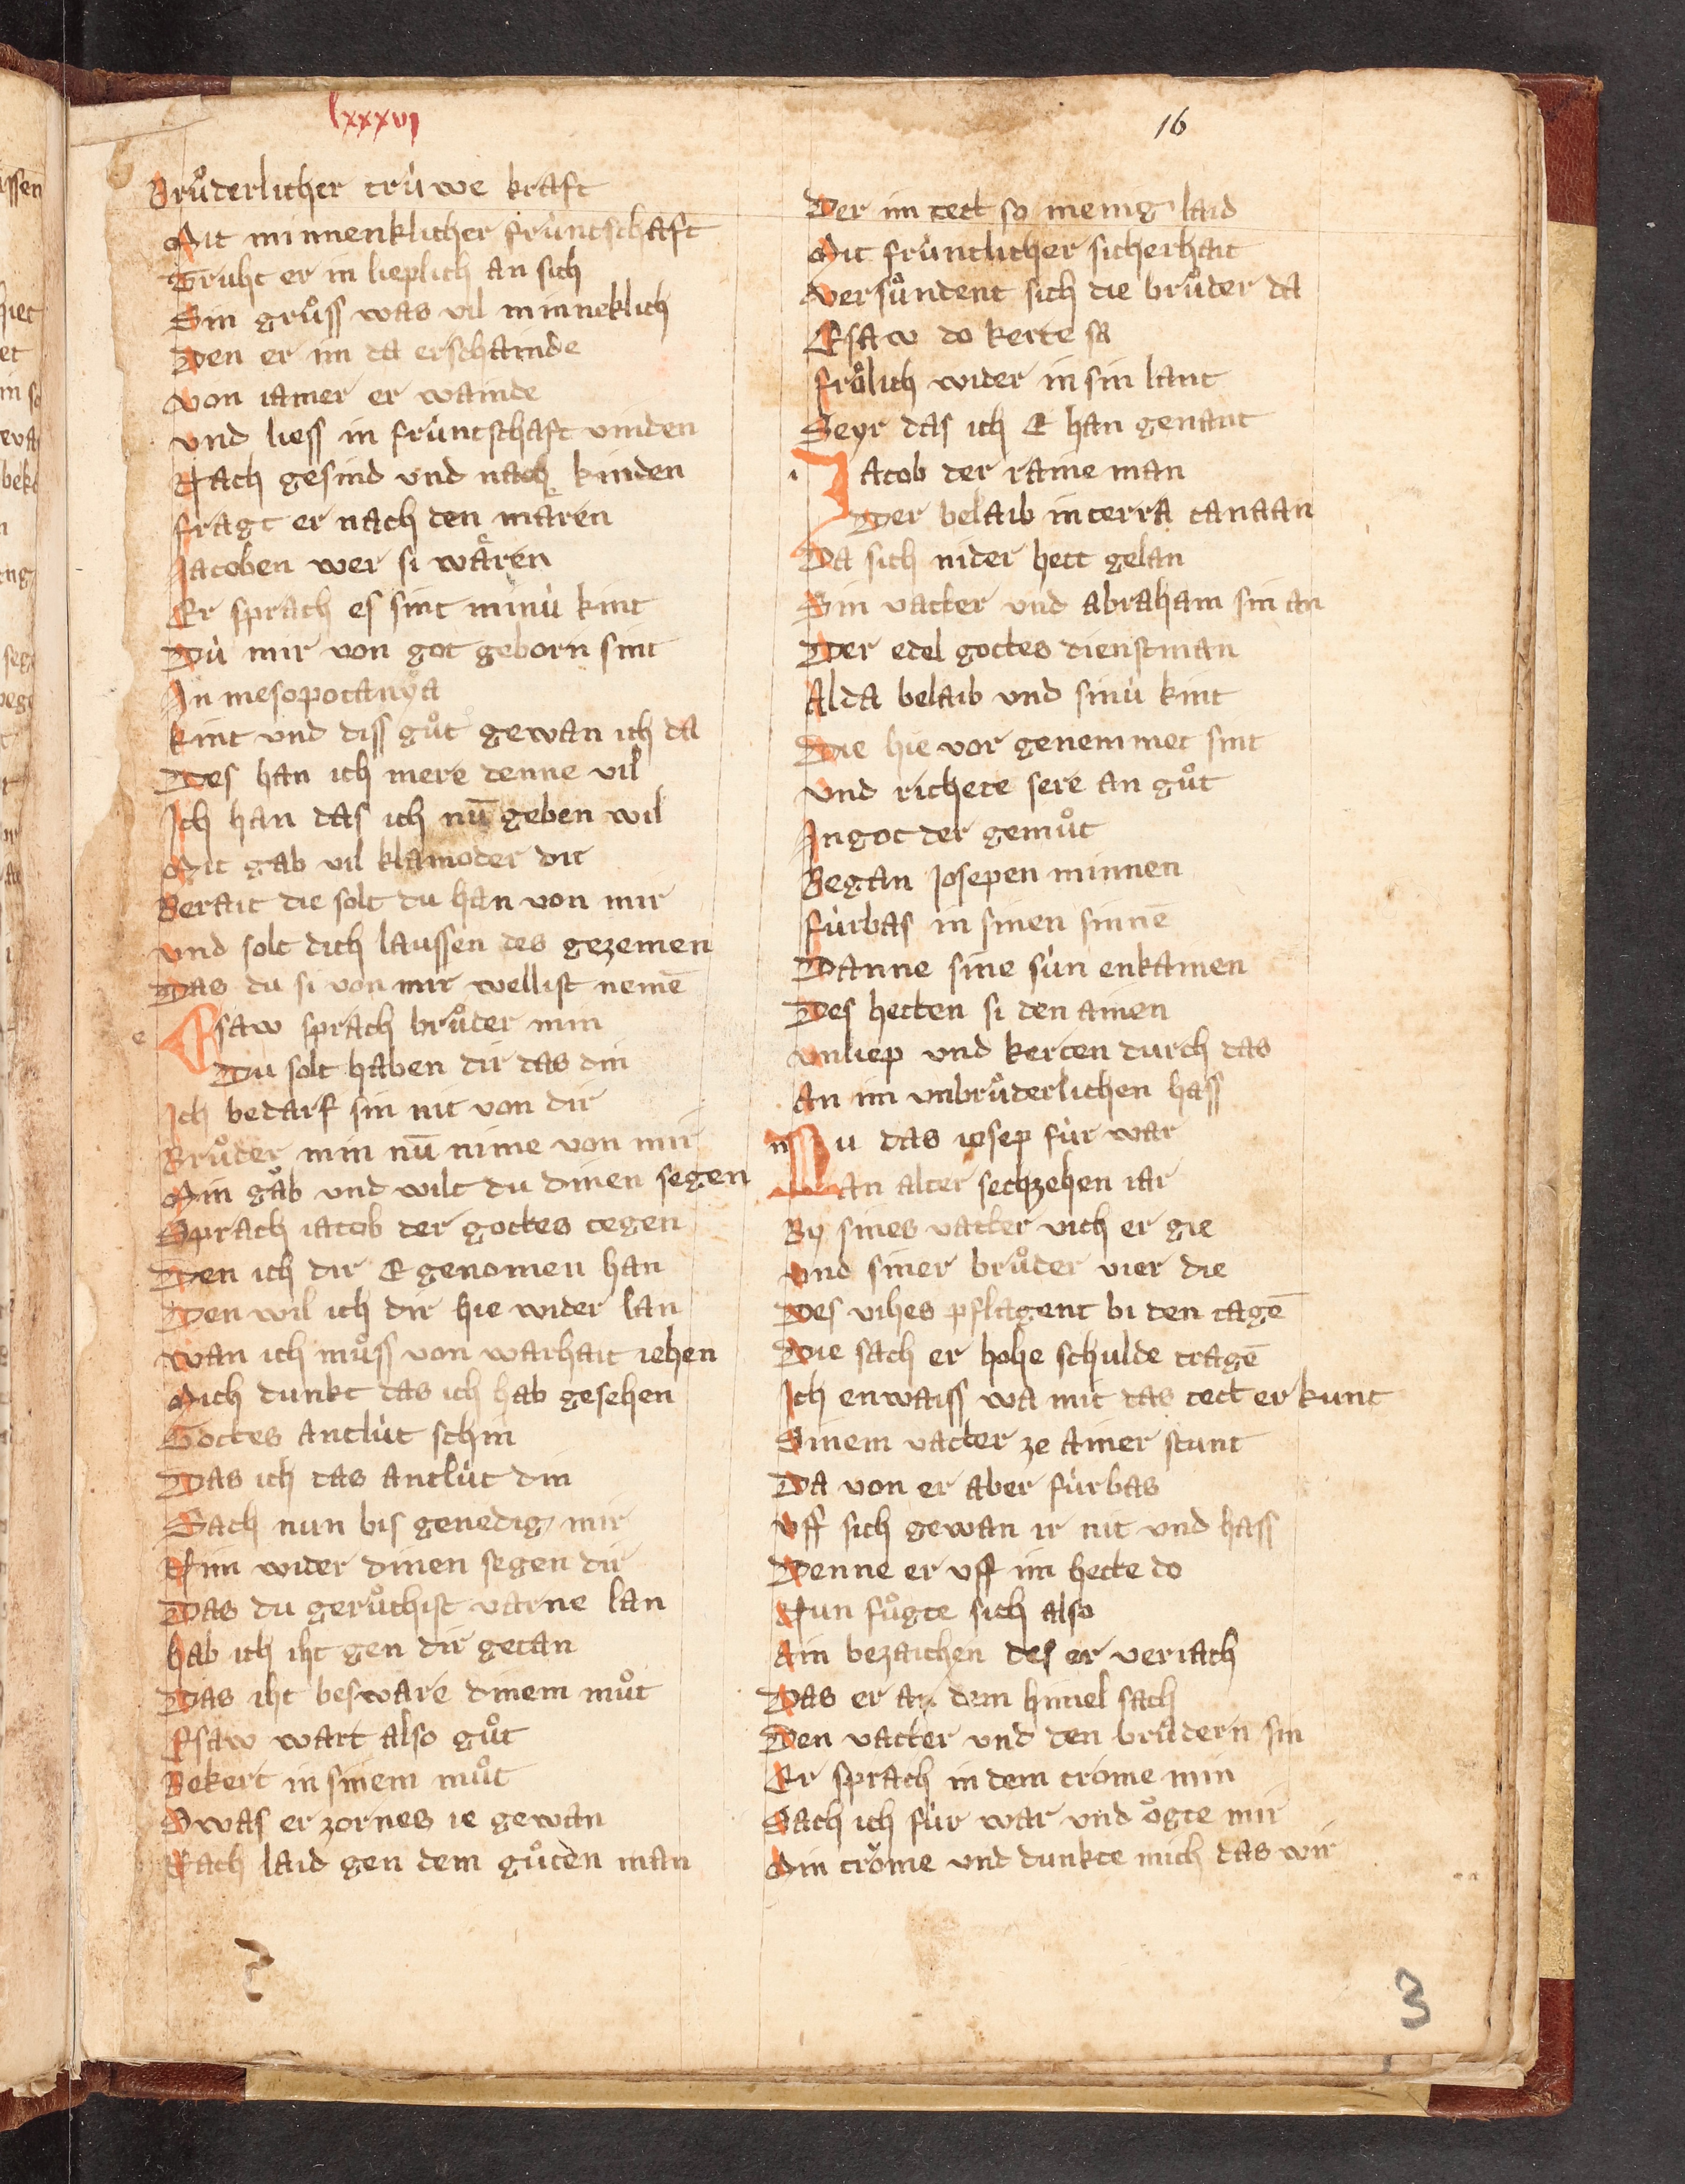 lxxxvj
16
Brůderlicher trùwe kraft
Mit minnenklicher frùntschaft
Truht er in lieplich an sich
Sin grůss was vil minneklich
Den er im da erschainde
Von iamer er wainde
Vnd liess in frùntschaft vinden
Nach gesind vnd nach kinden
fragt er nach den mären
Jacoben wer si wären
Er sprach es sint minù kint
Dù mir von got geborn sint
In mesopotanya
kint vnd diss gůt gewan ich da
Des han ich mere denne vil
Ich han das ich nū geben wil
Mit gab vil klainoder dir
Berait die solt du han von mir
Vnd solt dich laussen des gezemen
Das du si von mir wellist nemē
e Esaw sprach brůder min
Du solt haben dir das din
Ich bedarf sin nit von dir
Brůder min nū nime von mir
Min gab vnd wilt du dinen segen
Sprach iacob der gottes tegen
Den ich dir E genomen han
Den wil ich dir hie wider lan
Wan ich můss von warhait iehen
Mich dunkt das ich hab gesehen
Gottes antlùt schin
Das ich das antlùt din
Sach nun bis genedig mir
Nim wider dinen segen dir
Das du gerůchist varne lan
hab ich iht gen dir getan
Das iht beswäre dinem můt
Esaw wart also gůt
Bekert in sinem můt
Swas er zornes ie gewan
Nach laid gen dem gůten man
Der im tett so menig laid
Mit frùntlicher sicherhait
Versůndent sich die brůder da
Esaw do kerte sa
frölich wider in sin lant
Seyr das ich E han genant
i Jacob der raine man
Der belaib in terra canaan
Da sich nider hett gelan
Sin vatter vnd abraham sin an
Der edel gottes dienstman
Alda belaib vnd sinù kint
Die hie vor genemmet sint
Vnd richete sere an gůt
In got der gemůt
Began Josepen minnen
fùrbas in sinen sinnē
Danne sine sùn enkainen
Des hetten si den ainen
Vnliep vnd kerten durch das
An im vnbrůderlichen hass
n Nu das iosep fùr war
An alter sechzehen iar
By sines vatter vich er gie
Vnd siner brůder vier die
Des vihes pflagent bi den tagē
Die sach er hohe schulde tragē
Ich enwaiss wa mit das tett er kunt
Sinem vatter ze ainer stunt
Da von er aber fùrbas
Vff sich gewan ir nit vnd hass
Denne er vff im hette do
Nun fůgte sich also
Ain bezaichen des er veriach
Das er an dem himel sach
Den vatter vnd den brůdern sin
Er sprach in dem trome min
Sach ich fùr war vnd ögte mir
Min tröme vnd dunkte mich das wir
3